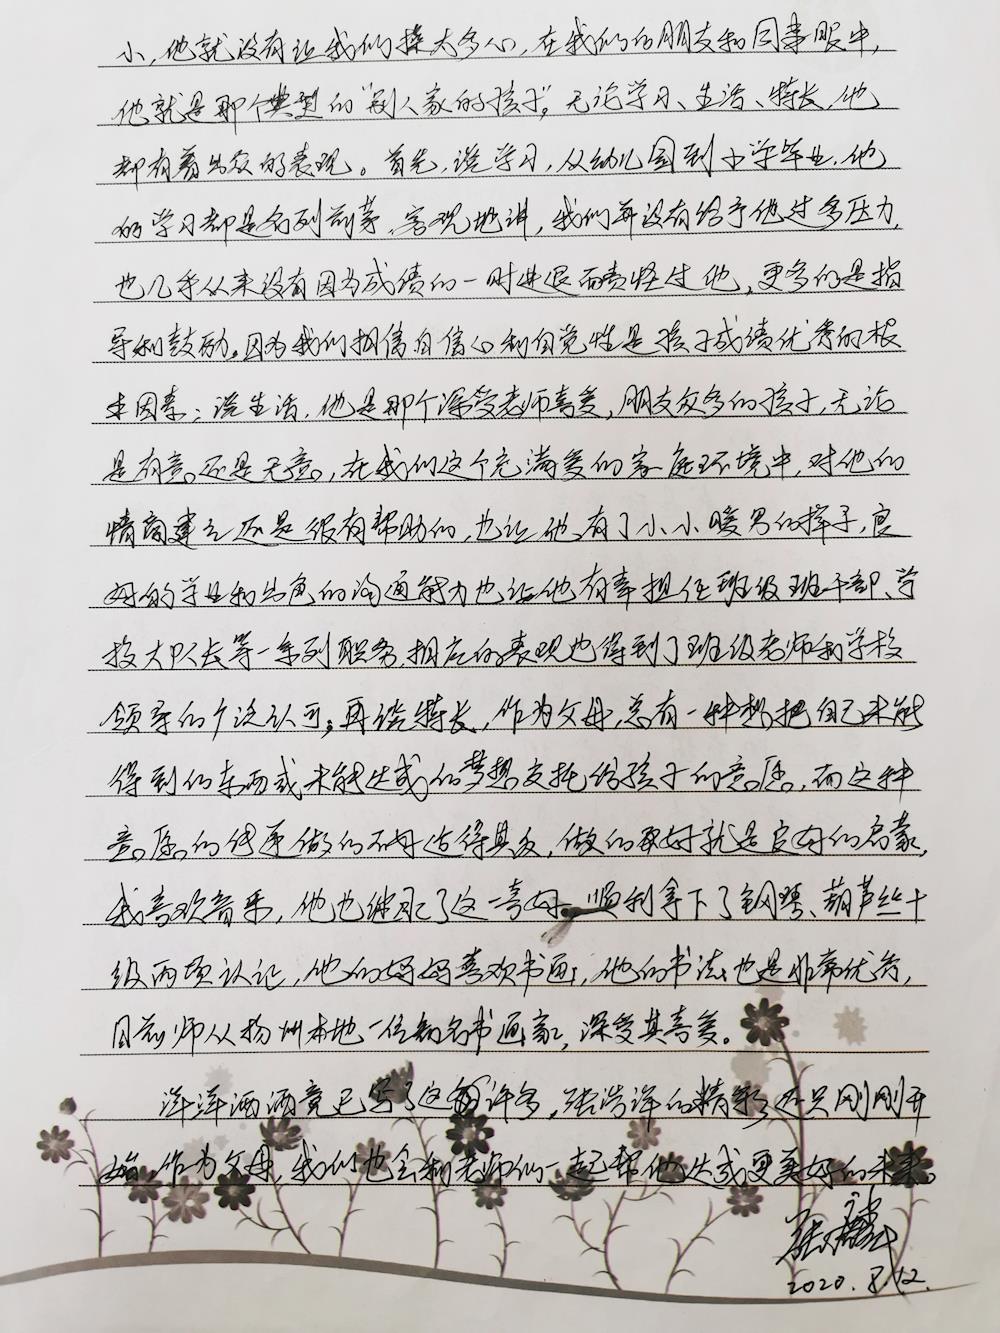 小，他就没有让我们操太多心，在我们的朋友和同事眼中，
他就是那个典型的“别人家的孩子”。无论学习、生活、特长，他
都有着出众的表现。首先，说学习，从幼儿园到小学毕业，他
的学习都是名列前茅，客观地讲，我们并没有给予他过多压力，
也几乎从来没有因为成绩的一时进退而责怪过他，更多的是指
导和鼓励。因为我们相信自信心和自觉性是孩子成绩优秀的根
本因素；说生活，他是那个深受老师喜爱，朋友众多的孩子，无论
是有意还是无意，在我们这个充满爱的家庭环境中，对他的
情商建立还是很有帮助的，也让他有了小小暖男的样子，良
好的学业和出色的沟通能力也让他有幸担任班级班干部、学
校大队长等一系列职务，相应的表现也得到了班级老师和学校
领导的广泛认可；再谈特长，作为父母，总有一种想把自己未能
得到的东西或未能达成的梦想交托给孩子的意愿，而这种
意愿的传递做的不好适得其反，做的好就是良好的启蒙，
我喜欢音乐，他也继承了这一喜好，顺利拿下了钢琴、葫芦丝十
级两项认证，他的妈妈喜欢书画，他的书法也是非常优秀，
目前师从扬州本地一位知名书画家，深受其喜爱。
洋洋洒洒竟已写了这许多，张浩洋的精彩还只刚刚开
始，作为父母，我们也会和老师们一起帮他达成更美好的未来。
2020.8.12.